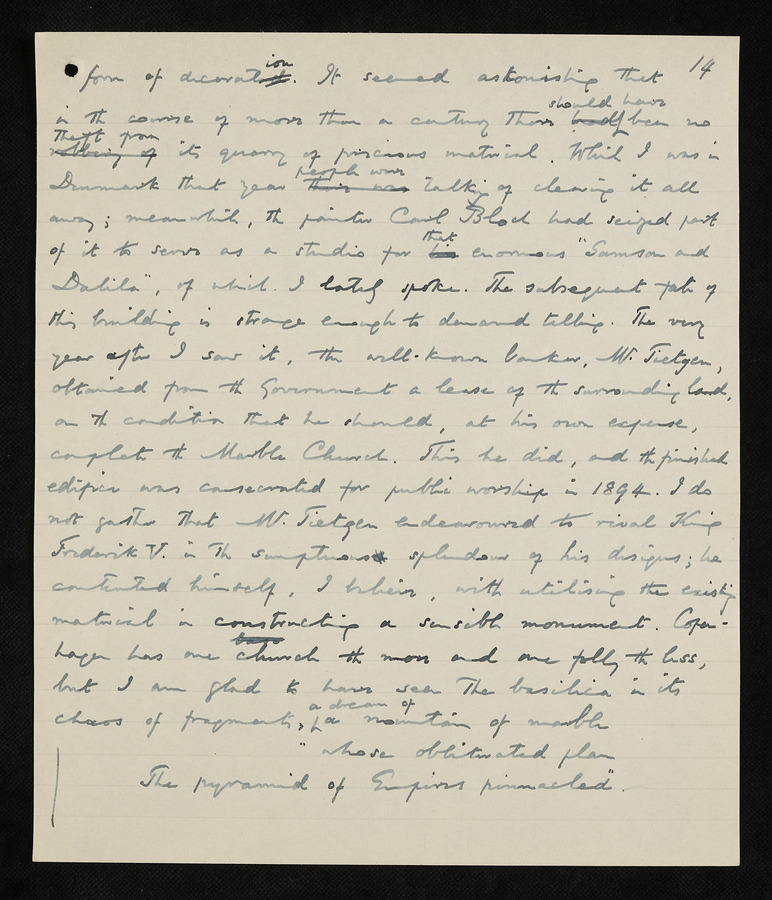 14
form of decoration. It seemed astonishing that
in the course of more than a century there should have been no
theft from its quarry of precious material. While I was in
Denmark that year people were talking of clearing it all
away; meanwhile, the painter Carl Bloch had seized part
of it to serve as a studio for that enormous "Samson and
Dalila", of which I lately spoke. The subsequent fate of
this building is strange enough to demand telling. The very
year after I saw it, the well-known banker, M. Tietgen,
obtained from the Government a lease of the surrounding land,
on the condition that he should, at his own expense,
complete the Marble Church. This he did, and the finished
edifice was consecrated for public worship in 1894. I do
not gather that M. Tietgen endeavoured to rival King
Frederik V. in the sumptuous splendour of his designs; he
contented himself, I believe, with utilising the existing
material in constructing a sensible monument. Copen-
hagen has one church the more and one folly the less,
but I am glad to have seen the basilica in its
chaos of fragments, a dream of a mountain of marble
"whose obliterated plan
The pyramid of Empires pinnacled".